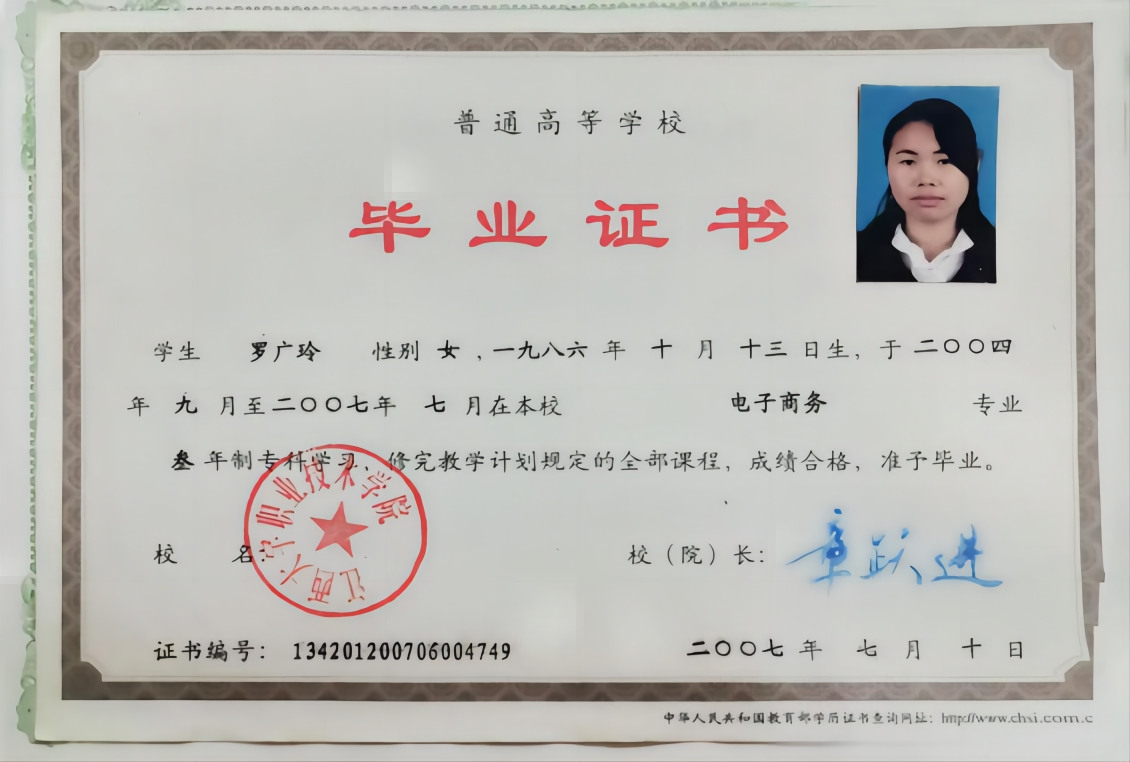 普通高等学校
毕业证书
学生 罗广玲 性别 女 ,一九八六 年 十 月 十三 日生, 于 二〇〇四
年 九 月至二〇〇七年 七 月在本校 电子商务 专业
叁 年制专科学习, 修完教学计划规定的全部课程, 成绩合格, 准予毕业。
江西大宇职业技术学院
校 名: 校（院）长: 章跃进
证书编号: 134201200706004749 二〇〇七 年 七 月 十 日
中华人民共和国教育部学历证书查询网址: http://www.chsi.com.c